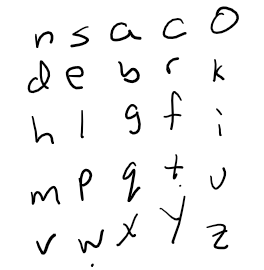 n s a c o
d e b r k
h l g f i
m p q t u
v w x y z